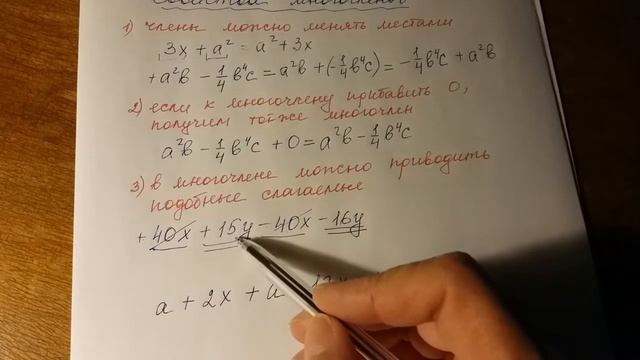 Свойства многочленов
1) члены можно менять местами
3x + a² = a² + 3x
+ a²в - 1/4 в⁴с = a²в + (-1/4 в⁴с) = -1/4 в⁴с + a²в
2) если к многочлену прибавить 0,
получим тот же многочлен
a²в - 1/4 в⁴с + 0 = a²в - 1/4 в⁴с
3) в многочлене можно приводить
подобные слагаемые
+ 40x + 15y - 40x - 16y
a + 2x + a